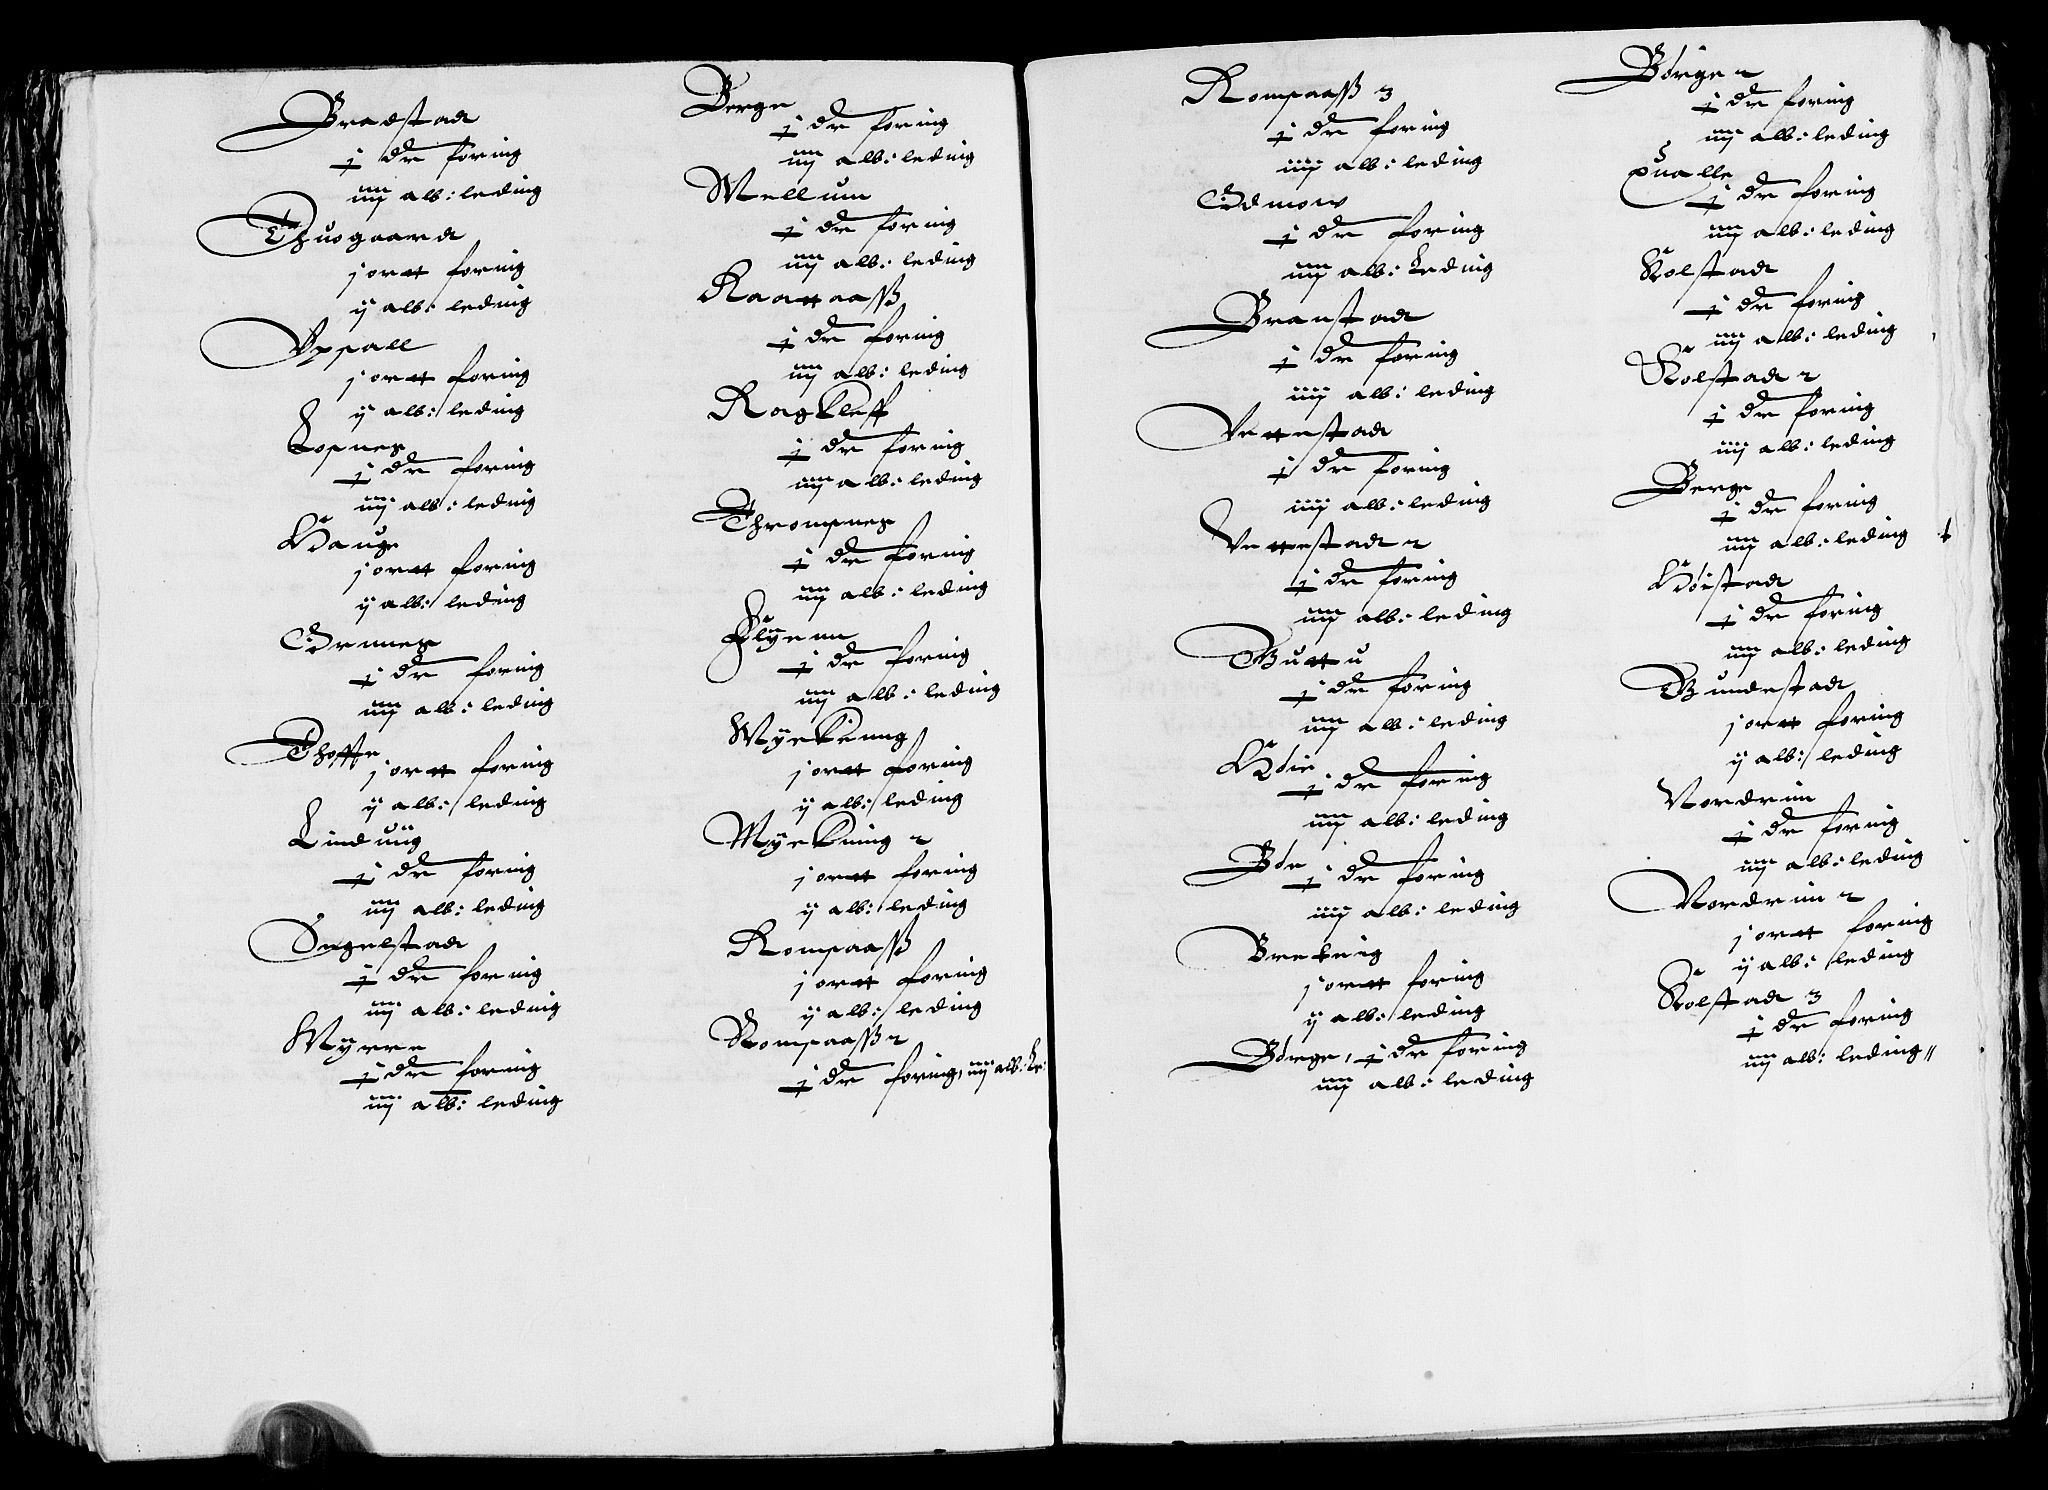 Bradstad
j dr foring
iiij alb: leding
Thuogaard
j ortt foring
ij alb: leding
Opsall
j ortt foring
ij alb: leding
Lopnes
j dr foring
iiij alb: leding
Hauge
j ortt foring
ij alb: leding
Grimes
j dr foring
iiij alb: leding
Thoffte
j ortt foring
ij alb: leding
Linduiig
j dr foring
iiij alb: leding
Segelstad
j dr foring
iiij alb: leding
Myrre
j dr foring
iiij alb: leding
Berge
j dr foring
iiij alb: leding
Mellum
j dr foring
iiij alb: leding
Raattaaß
j dr foring
iiij alb: leding
Ragkleff
j dr foring
iiij alb: leding
Thrompnes
j dr foring
iiij alb: leding
j dr foring
iiij alb: leding
Myekling
j ortt foring
ij alb: leding
Myekling 2
j ortt foring
ij alb: leding
Rompaaß
j ortt foring
ij alb: leding
Rompaaß 2
j dr foring, iiij alb: le:
Rompaaß 3
j dr foring
iiij alb: leding
Odmow
j dr foring
iiij alb: Leding
Branstad
j dr foring
iiij alb: leding
Vettestad
j dr foring
iiij alb: leding
Vettestad 2
j dr foring
iiij alb: leding
Buttu
j dr foring
iiij alb: leding
Høie
j dr foring
iiij alb: leding
Bøe
j dr foring
iiij alb: leding
Brekeig
j ortt foring
ij alb: leding
Børge, j dr foring
iiij alb: leding
Børge 2
j dr foring
iiij alb: leding
Qualle
j dr foring
iiij alb: leding
Kolstad
j dr foring
iiij alb: leding
Kolstad 2
j dr foring
iiij alb: leding
Berge
j dr foring
iiij alb: leding
Høistad
j dr foring
iiij alb: leding
Gundestad
j ortt foring
ij alb: leding
Nordrim
j dr foring
iiij alb: leding
Nordrim 2
j ortt foring
ij alb: leding
Kolstad 3
j dr foring
iiij alb: leding //